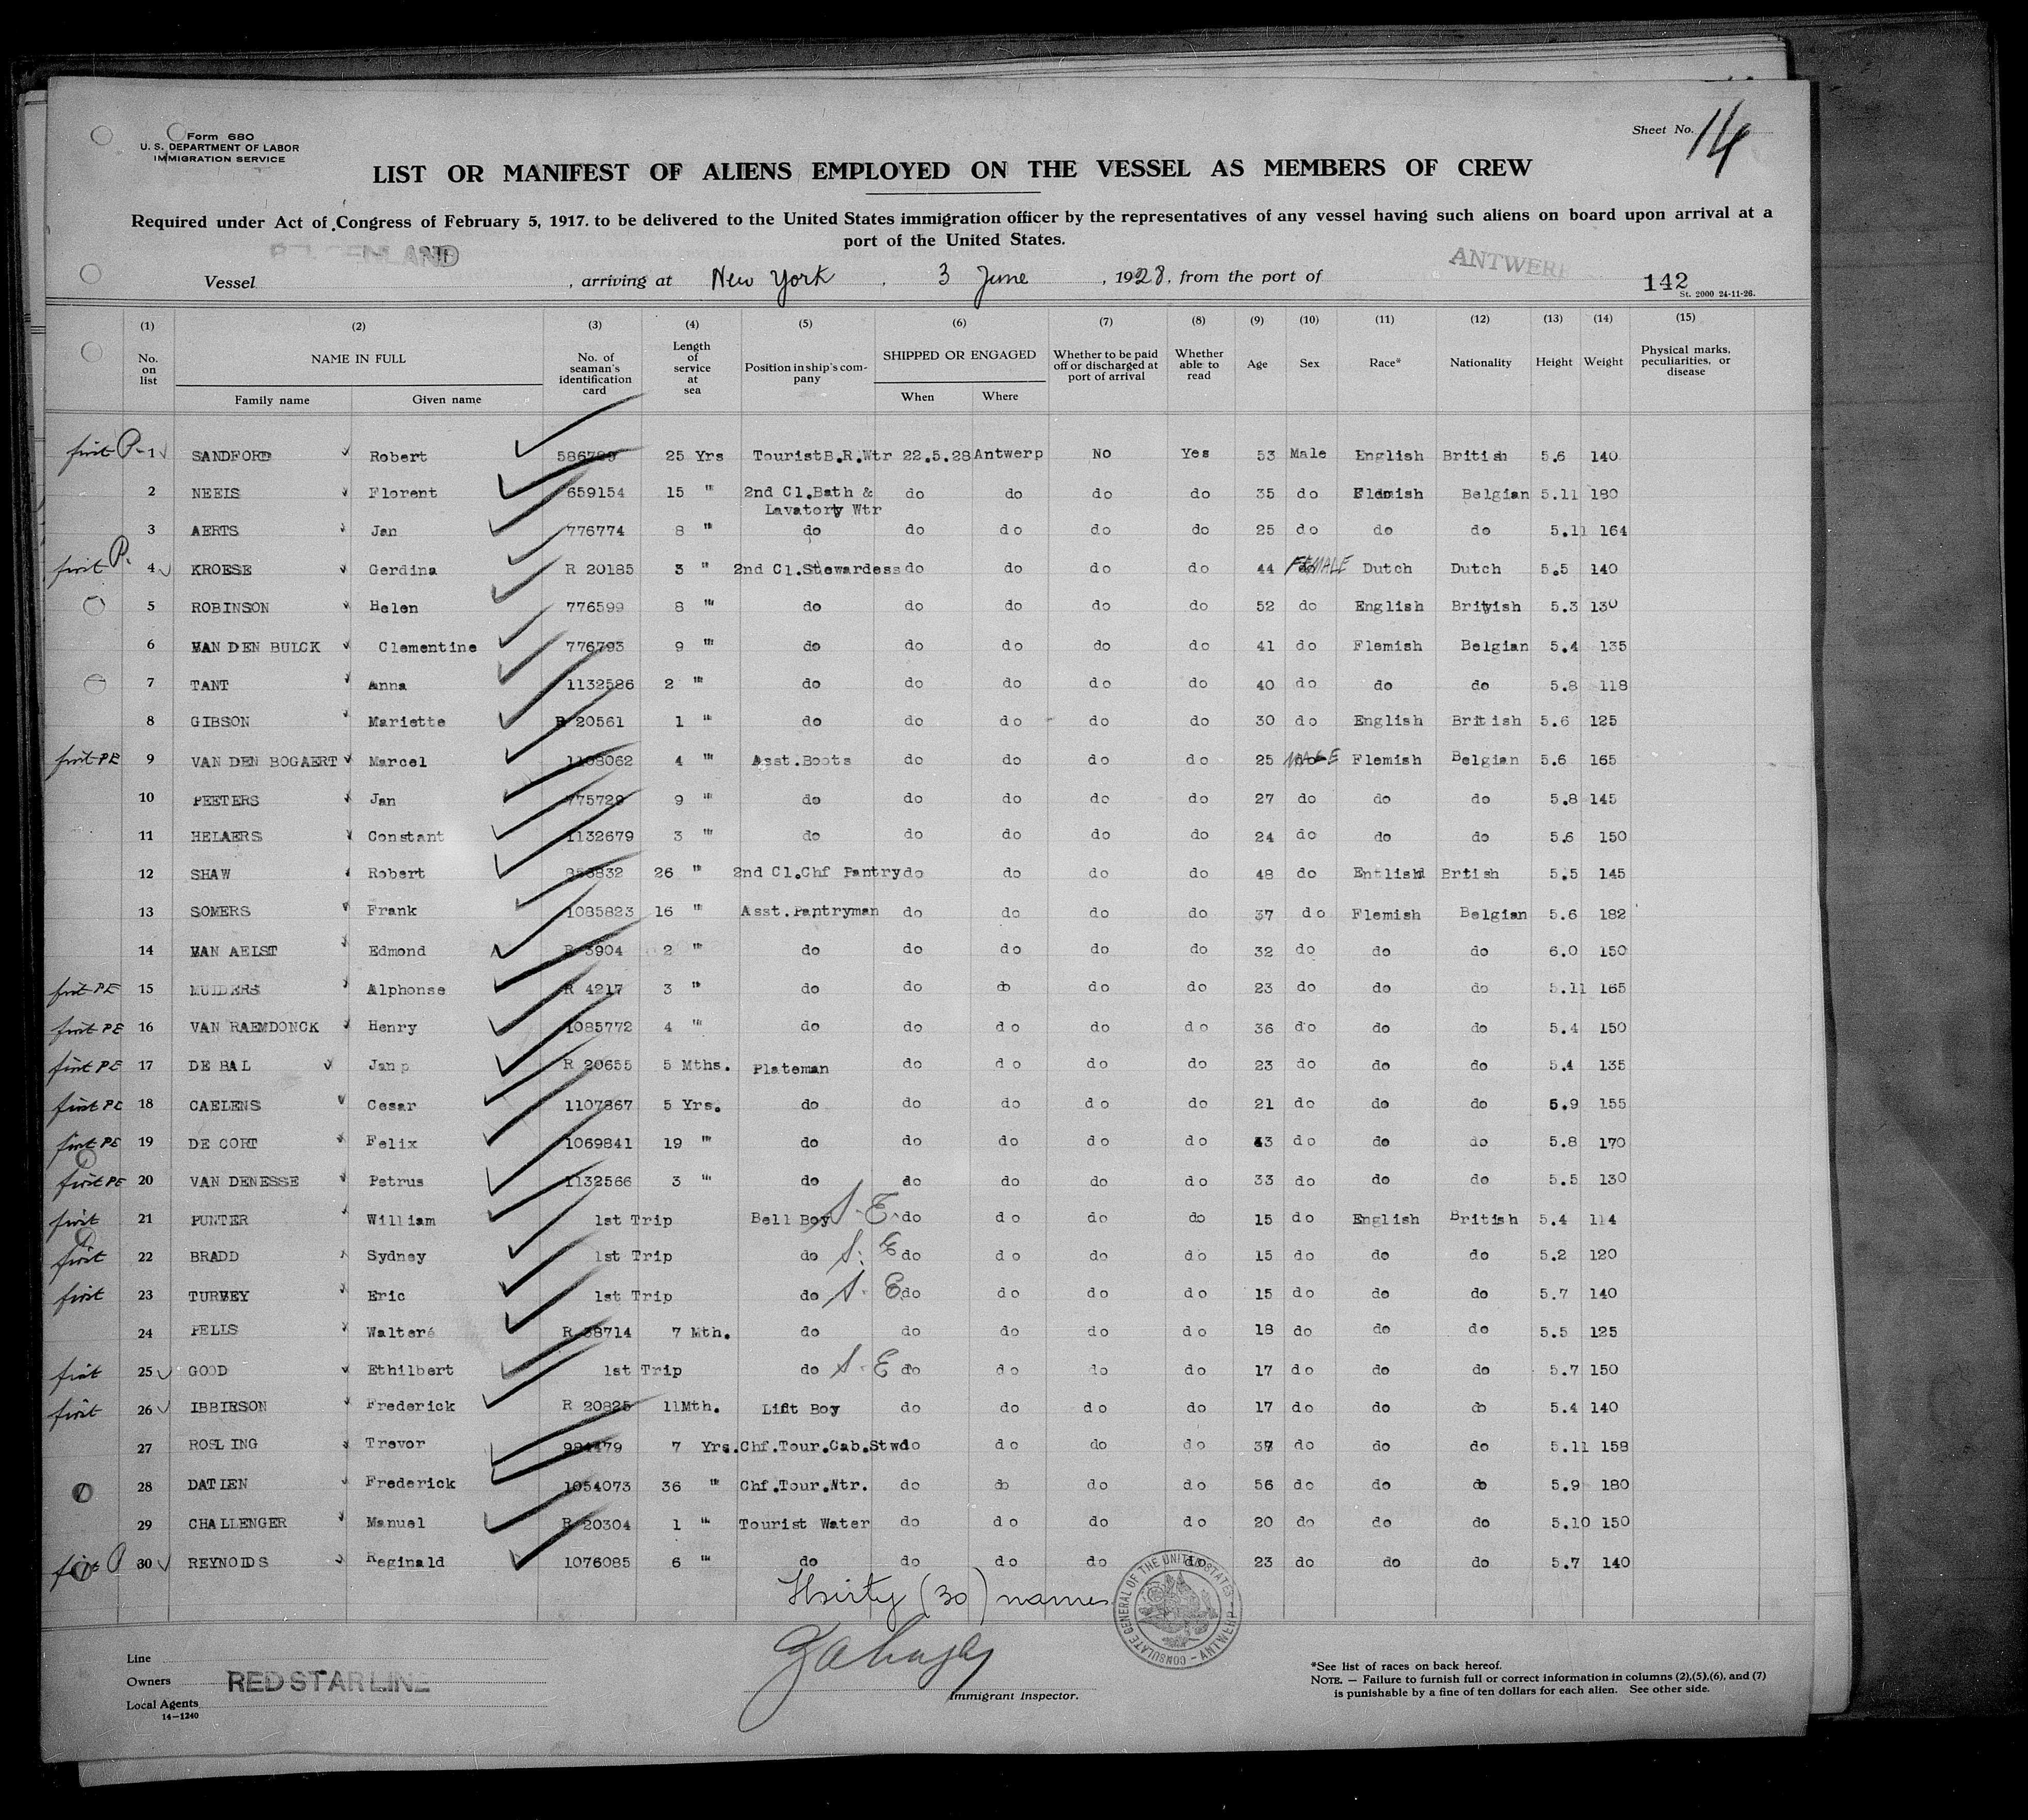 Form 680
U. S. DEPARTMENT OF LABOR
IMMIGRATION SERVICE
Sheet No. 14
LIST OR MANIFEST OF ALIENS EMPLOYED ON THE VESSEL AS MEMBERS OF CREW
Required under Act of Congress of February 5, 1917. to be delivered to the United States immigration officer by the representatives of any vessel having such aliens on board upon arrival at a
port of the United States.
Vessel , arriving at New York , 3 June , 1928, from the port of ANTWERP 142
St. 2000 24-11-26.
(1) (2) (3) (4) (5) (6) (7) (8) (9) (10) (11) (12) (13) (14) (15)
No. on list NAME IN FULL Family name Given name No. of seaman's identification card Length of service at sea Position in ship's company SHIPPED OR ENGAGED When Where Whether to be paid off or discharged at port of arrival Whether able to read Age Sex Race* Nationality Height Weight Physical marks, peculiarities, or disease
first P. 1 SANDFORD Robert 586789 25 Yrs TouristB.R.Wtr 22.5.28 Antwerp No Yes 53 Male English British 5.6 140
2 NEEIS Florent 659154 15 " 2nd Cl.Bath & Lavatory Wtr do do do do 35 do Flemish Belgian 5.11 180
3 AERTS Jan 776774 8 " do do do do do 25 do do do 5.11 164
first P. 4 KROESE Gerdina R 20185 3 " 2nd Cl.Stewardess do do do do 44 FEMALE Dutch Dutch 5.5 140
5 ROBINSON Helen 776599 8 " do do do do do 52 do English British 5.3 130
6 VAN DEN BULCK Clementine 776793 9 " do do do do do 41 do Flemish Belgian 5.4 135
7 TANT Anna 1132586 2 " do do do do do 40 do do do 5.8 118
8 GIBSON Mariette R 20561 1 " do do do do do 30 do English British 5.6 125
first PE 9 VAN DEN BOGAERT Marcel 1108062 4 " Asst.Boots do do do do 25 MALE Flemish Belgian 5.6 165
10 PEETERS Jan 775729 9 " do do do do do 27 do do do 5.8 145
11 HELAERS Constant 1132679 3 " do do do do do 24 do do do 5.6 150
12 SHAW Robert 26 " 2nd Cl.Chf Pantry do do do do 48 do Entlish Brtish 5.5 145
13 SOMERS Frank 1085823 16 " Asst.Pantryman do do do do 37 do Flemish Belgian 5.6 182
14 VAN AELST Edmond R 3904 2 " do do do do do 32 do do do 6.0 150
first PE 15 MUIDERS Alphonse R 4217 3 " do do do do do 23 do do do 5.11 165
first PE 16 VAN RAEMDONCK Henry 1085772 4 " do do do do do 36 do do do 5.4 150
first PE 17 DE BAL Jan p R 20655 5 Mths. Plateman do do do do 23 do do do 5.4 135
first PE 18 CAELENS Cesar 1107867 5 Yrs. do do do do do 21 do do do 5.9 155
first PE 19 DE CORT Felix 1069841 19 " do do do do do 43 do do do 5.8 170
first PE 20 VAN DENESSE Petrus 1132566 3 " do do do do do 33 do do do 5.5 130
first 21 PUNTER William 1st Trip Bell Boy S.E. do do do do 15 do English British 5.4 114
first 22 BRADD Sydney 1st Trip do S.E do do do do 15 do do do 5.2 120
first 23 TURVEY Eric 1st Trip do S.E do do do do 15 do do do 5.7 140
24 PELLS Walteré R 38714 7 Mth. do do do do do 18 do do do 5.5 125
first 25 GOOD Ethilbert 1st Trip do S.E do do do do 17 do do do 5.7 150
first 26 IBBIRSON Frederick R 20825 11Mth. Lift Boy do do do do 17 do do do 5.4 140
27 ROSLING Trevor 7 Yrs. Chf.Tour.Cab.Stwd do do do do do do do 5.11 158
28 DATLEN Frederick 1054073 36 " Chf.Tour.Wtr. do do do do 56 do do do 5.9 180
29 CHALLENGER Manuel R 20304 1 " Tourist Water do do do do 20 do do do 5.10 150
first P 30 REYNOIDS Reginald 1076085 6 " do do do do do 23 do do do 5.7 140
Thirty (30) names
CONSULATE GENERAL OF THE UNITED STATES - ANTWERP -
Line
Owners RED STAR LINE
Local Agents
14—1240
Immigrant Inspector.
*See list of races on back hereof.
NOTE. — Failure to furnish full or correct information in columns (2),(5),(6), and (7)
is punishable by a fine of ten dollars for each alien. See other side.